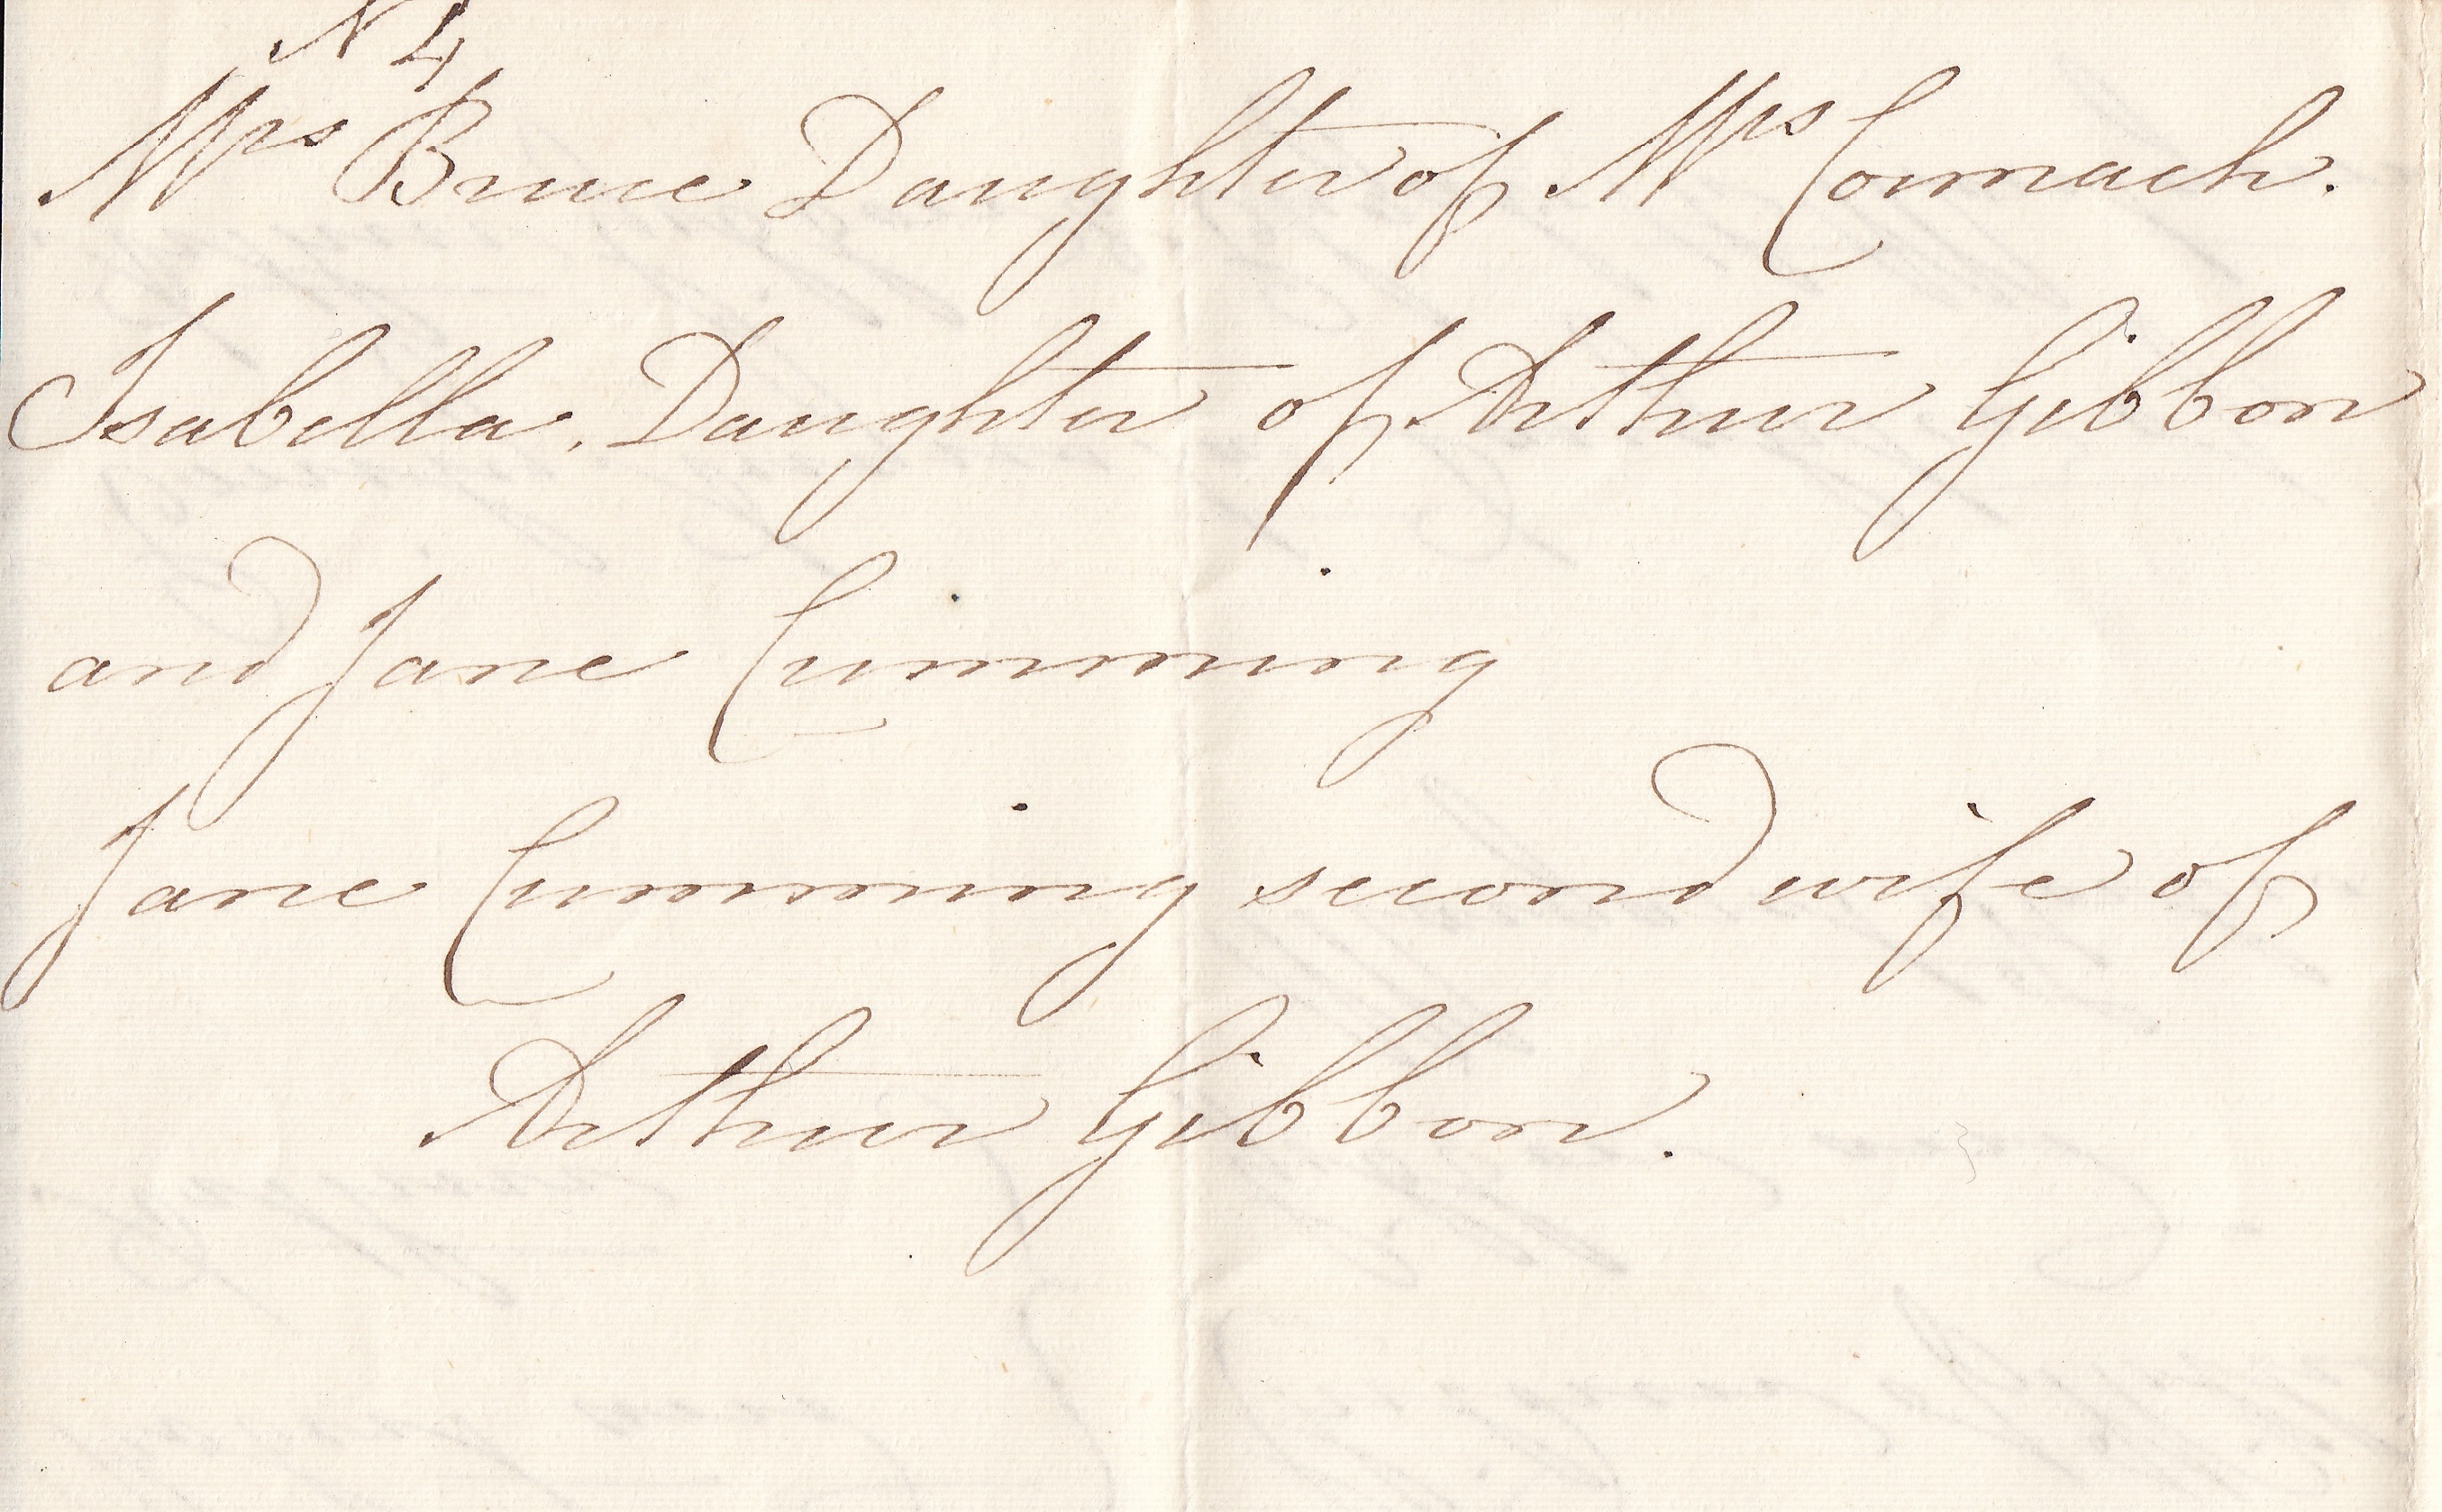 N 4
Mrs Bruce Daughter of Mrs Cormach.
Isabella. Daughter of Arthur Gibbon
and Jane Cumming
Jane Cumming second wife of
Arthur Gibbon.